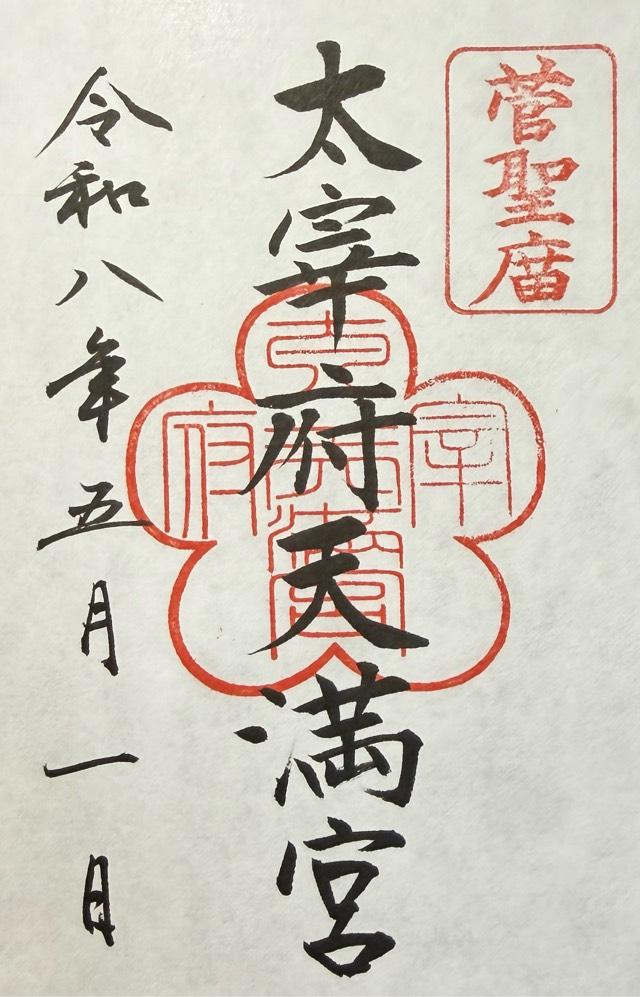 菅聖庿
太宰府天満宮
太宰府天満宮
令和八年五月一日